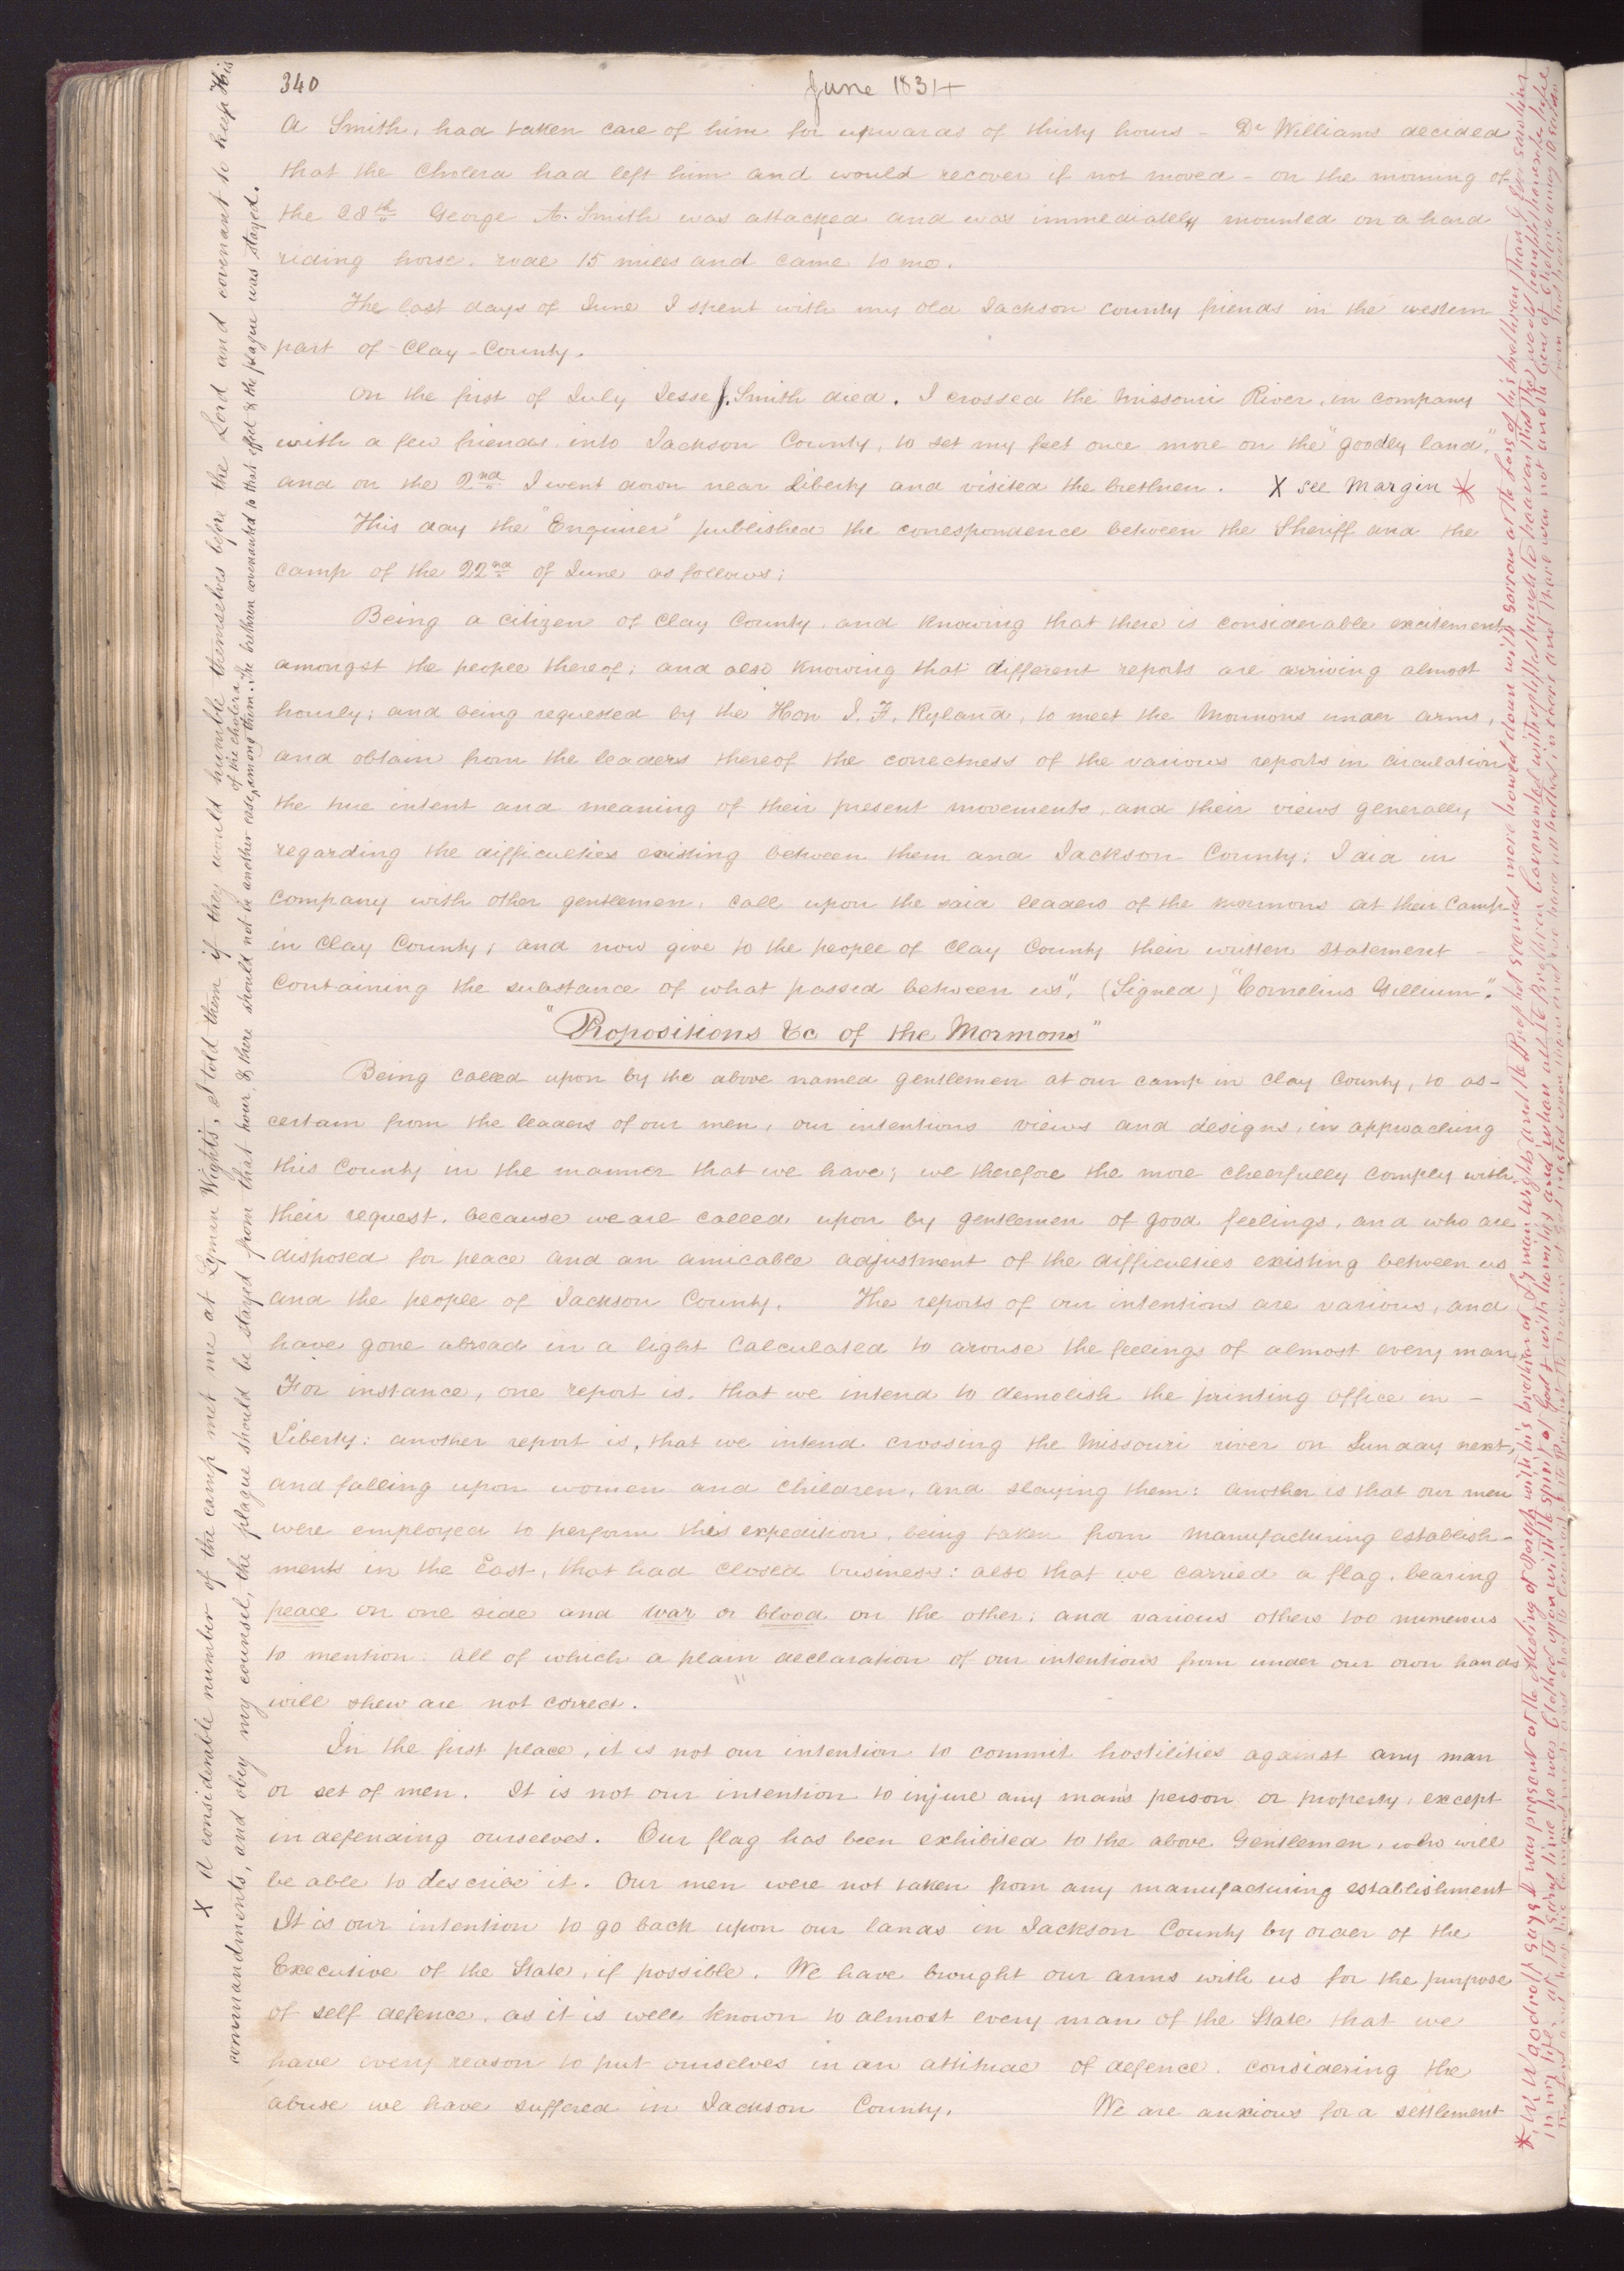 340
June 1834
A Smith, had taken care of him for upwards of thirty hours - Dr Williams decided
that the Cholera had left him and would recover if not moved - on the morning of
the 28th George A. Smith was attacked and was immediately mounted on a hard
riding horse. rode 15 miles and came to me.
The last days of June I spent with my old Jackson County friends in the western
part of Clay County.
On the first of July Jesse J. Smith died. I crossed the Missouri River, in company
with a few friends into Jackson County, to set my feet once more on the "goodly land,"
and on the 2nd I went down near Liberty and visited the brethren. X see margin *
This day the "Enquirer" published the correspondence between the Sheriff and the
camp of the 22nd of June as follows;
Being a citizen of Clay County, and knowing that there is considerable excitement
amongst the people thereof; and also knowing that different reports are arriving almost
hourly; and being requested by the Hon J. F. Ryland, to meet the Mormons under arms,
and obtain from the leaders thereof the correctness of the various reports in circulation
the true intent and meaning of their present movements, and their views generally
regarding the difficulties existing between them and Jackson County; I did in
company with other gentlemen, call upon the said leaders of the mormons at their Camp
in Clay County; and now give to the people of Clay County their written statement -
Containing the substance of what passed between us". (Signed) "Cornelius Gillium".
"Propositions &c of the Mormons"
Being called upon by the above named gentlemen at our camp in clay County, to as-
certain from the leaders of our men, our intentions views and designs, in approaching
this County in the manner that we have; we therefore the more cheerfully comply with
their request, because we are called upon by gentlemen of good feelings, and who are
disposed for peace and an amicable adjustment of the difficulties existing between us
and the people of Jackson County. The reports of our intentions are various, and
have gone abroad in a light calculated to arouse the feelings of almost every man
For instance, one report is, that we intend to demolish the printing office in -
Liberty: another report is, that we intend crossing the Missouri river on Sunday next,
and falling upon women and children, and slaying them: another is that our men
were employed to perform this expedition, being taken from manufacturing establish-
ments in the East, that had closed business: also that we carried a flag, bearing
peace on one side and war or blood on the other; and various others too numerous
to mention. All of which a plain declaration of our intentions from under our own hands
will shew are not correct.
In the first place, it is not our intention to commit hostilities against any man
or set of men. It is not our intention to injure any man's person or property, except
in defending ourselves. Our flag has been exhibited to the above Gentlemen, who will
be able to describe it. Our men were not taken from any manufacturing establishment
It is our intention to go back upon our lands in Jackson County by order of the
Executive of the State, if possible. We have brought our arms with us for the purpose
of self defence, as it is well known to almost every man of the State that we
have every reason to put ourselves in an attitude of defence, considering the
abuse we have suffered in Jackson County. We are anxious for a settlement
X A considerable number of the camp met me at Lyman Wights, I told them if they would humble themselves before the Lord and covenant to keep His
commandments, and obey my counsel, the plague should be stayed from that hour, & there should not be another case of the cholera among them. The brethren covenanted to that effect & the plague was stayed.
* W Woodruff says I was present at the Meeting of Joseph with his brethren at Lyman Wights and the Prophet seemed more bowed down with sorrow at the loss of his brethren than I ever saw him
in my life, at the same time he was Clothed upon with the spirit of God